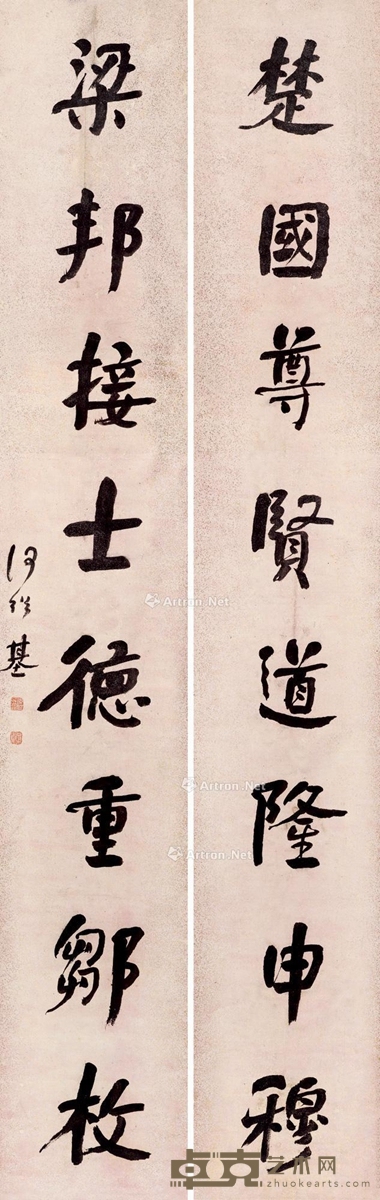 楚國尊賢道隆申穆
梁邦接士德重鄒枚
何紹基
Artron.Net
Artron.Net
Artron.Net
卓克艺术网
zhuokearts.com